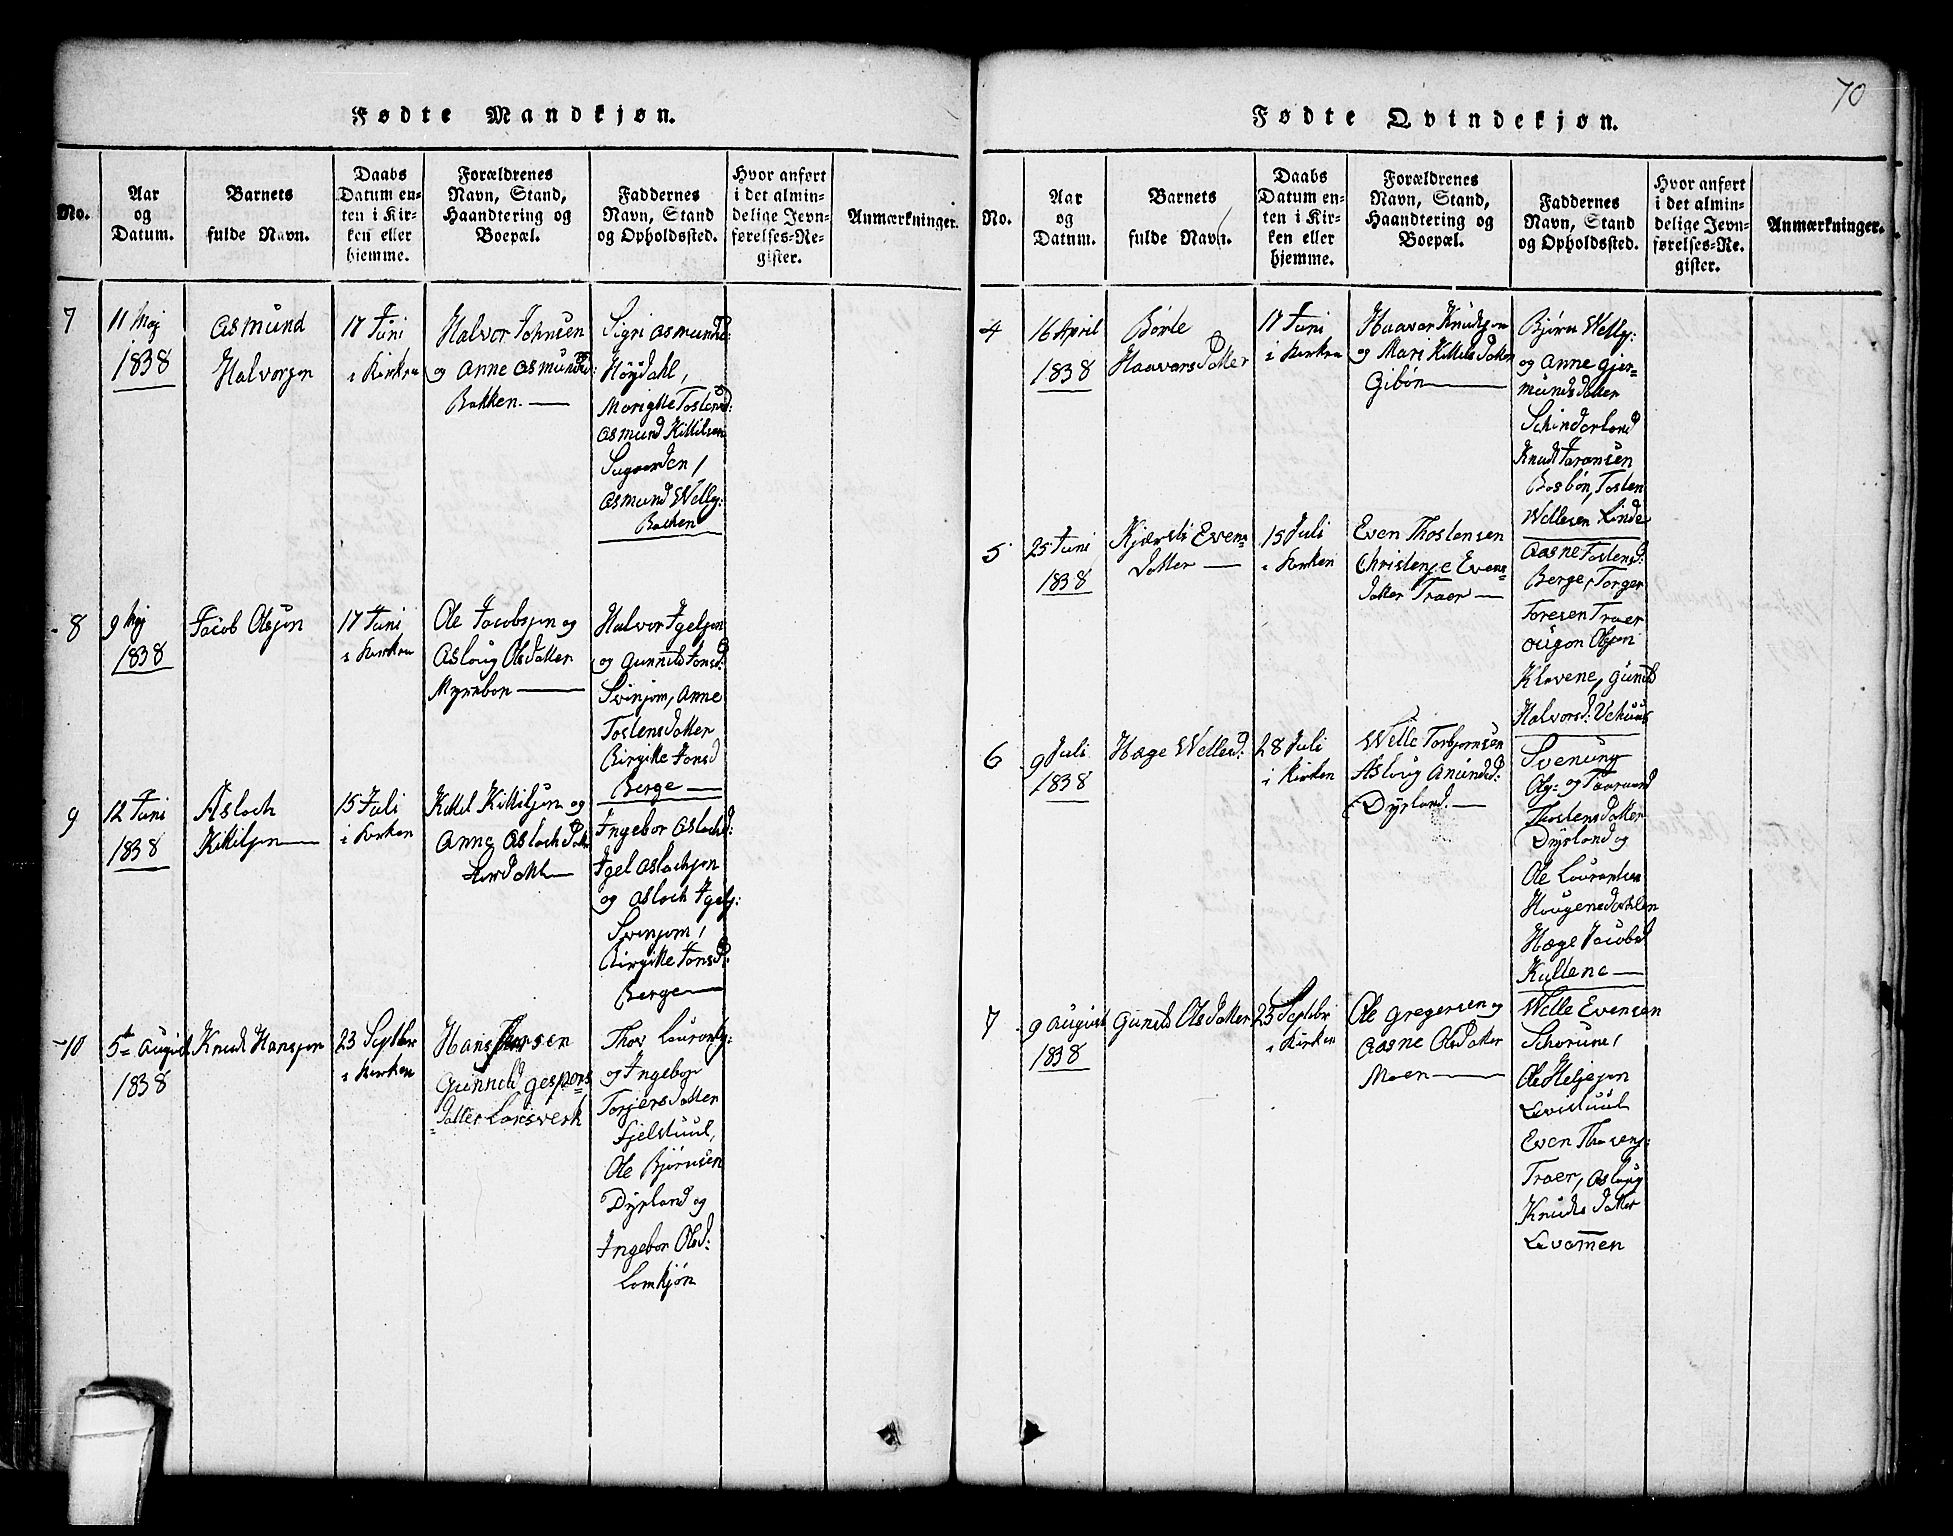 70
Fødte Mandkjøn.
No.
Aar
og
Datum.
Barnets
fulde Navn.
Daabs
Datum en-
ten i Kir-
ken eller
hjemme.
Forældrenes
Navn, Stand,
Haandtering og
Boepæl.
Faddernes
Navn, Stand
og Opholdssted.
Hvor anført
i det almin-
delige Jevn-
førelses-Re-
gister.
Anmærkninger.
7
11 Maj
1838
Asmund
Halvorsen
17 Juni
i Kirken
Halvor Johnsen
og Anne Asmundsd:
Bakken.
Sigri Asmunds:
Høydahl,
Margitte Tostensd:
Asmund Kittilsen
Sugaarden,
Asmund Wetly:
Bakken
8
9 Maj
1838
Jacob Olsen
17 Juni
i Kirken
Ole Jacobsen og
Asloug Olsdatter
Myrebøn
Halvor Igelsen
og Gunnild Jonsd:
Svinjom, Anne
Tostensdatter
Birgitte Jonsd
Berge
9
12 Juni
1838
Asloch
Kittilsen
15 Juli
i Kirken
Kittil Kittilsen og
Anne Aslochdatt
Hordahl
Ingebor Aslochd:
Igel Aslochsen
og Asloch Igels:
Svinjom,
Birgitte Jonsd:
Berge
10
5te August
1838
Knud Hansen
23 Septbr
i Kirken
Hans Thorsen
Gunnild Gespers
datter Lonsverk
Thor Lourants:
og Ingebor
Torjersdatter
Fjelstuul,
Ole Bjørnsen
Dyrland og
Ingebor Olsd:
Lomkjøn
Fødte Qvindekjøn.
No.
Aar
og
Datum.
Barnets
fulde Navn.
Daabs
Datum en-
ten i Kir-
ken eller
hjemme.
Forældrenes
Navn, Stand,
Haandtering og
Boepæl.
Faddernes
Navn, Stand
og Opholdssted.
Hvor anført
i det almin-
delige Jevn-
førelses-Re-
gister.
Anmærkninger.
4
16 April
1838
Børle
Haavorsdatter
17 Juni
i Kirken
Haavor Knudsen
og Mari Kittilsdatter
Gibøn
Bjørn Wetly:
og Anne Gjer-
mundsdatter
Schinderland
Knud Jaransen
Bosbøn, Tosten
Wetlesen Linde
5
25 Juni
1838
Kjærsti Evens
datter
15 Juli
i Kirken
Even Thostensen
Christense Evens
datter Traer
Aasne Tostensd:
Berge, Torger
Toresen Traer
Ougon Olsen
Klevene, Gunild
Halvorsd: Vehuus
6
9 Juli
1838
Hæge Wetlesd:
28 Juli
i Kirken
Wetle Torbjørnsen
Asloug Anundsd:
Dyrland.
Svenung
Ols: og Taarand
Thostensdatter
Dyrland og
Ole Lourantsen
Hougensdahlen
Hæge Jacobsd
Kultene
7
9 August
1838
Gunild Olsdatter
23 Septebr
i Kirken
Ole Gregersen og
Aasne Olsdatter
Moen
Wetle Evensen
Schorune,
Ole Helgesen
Levistuul
Even Thosens:
Traer, Asloug
Knudsdatter
Levomen